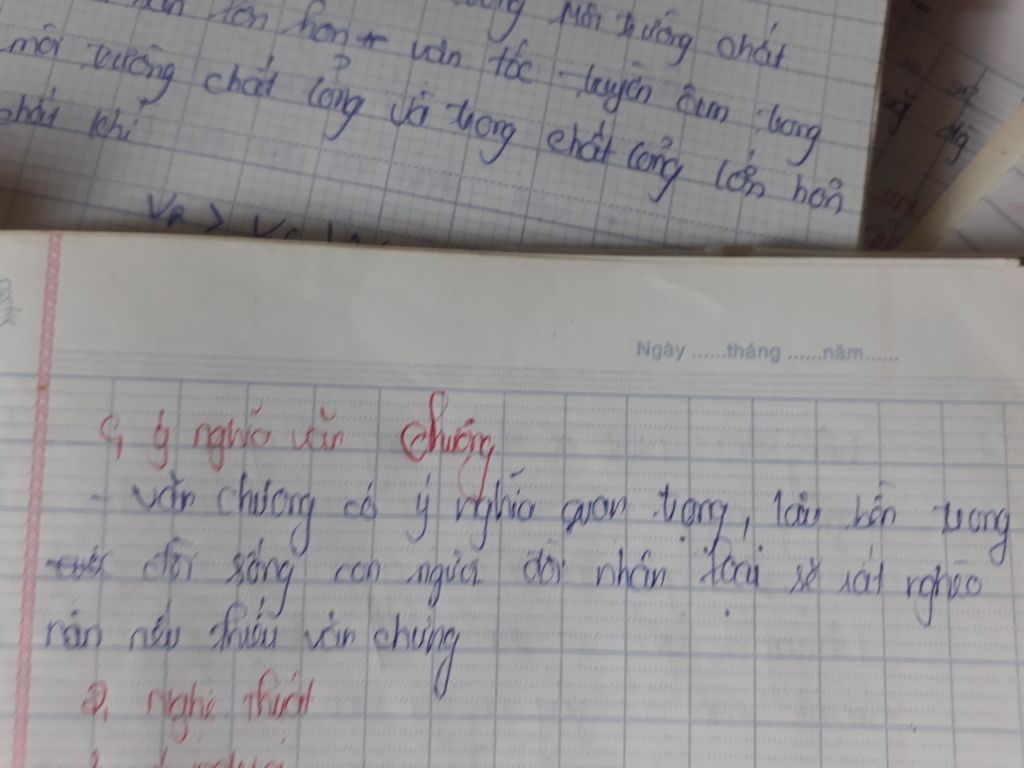 lớn hơn vận tốc truyền âm trong
môi trường chất
môi trường chất lỏng và trong chất lỏng lớn hơn
chất khí
Ngày ......tháng ......năm......
c, ý nghĩa văn chương
- văn chương có ý nghĩa quan trọng, lâu bền trong
đời sống con người đời nhân loại sẽ rất nghèo
nàn nếu thiếu văn chương
nghệ thuật